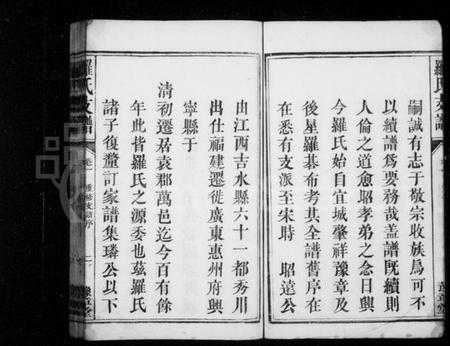 嗣誠有志于敬宗收族焉可不
以續譜爲要務哉蓋譜既續則
人倫之道愈昭孝弟之念日興
今羅氏始自宜城肇祥豫章及
後星羅碁布考其全譜舊序在
在悉有支派至宋時 昭遠公
由江西吉水縣六十一都秀川
出仕福建遷徙廣東惠州府興
寧縣于
清初遷居袁郡萬邑迄今百有餘
年此皆羅氏之源委也茲羅氏
諸子復釐訂家譜集璘公以下
羅氏支譜
卷一
重修支譜序
二
豫章堂